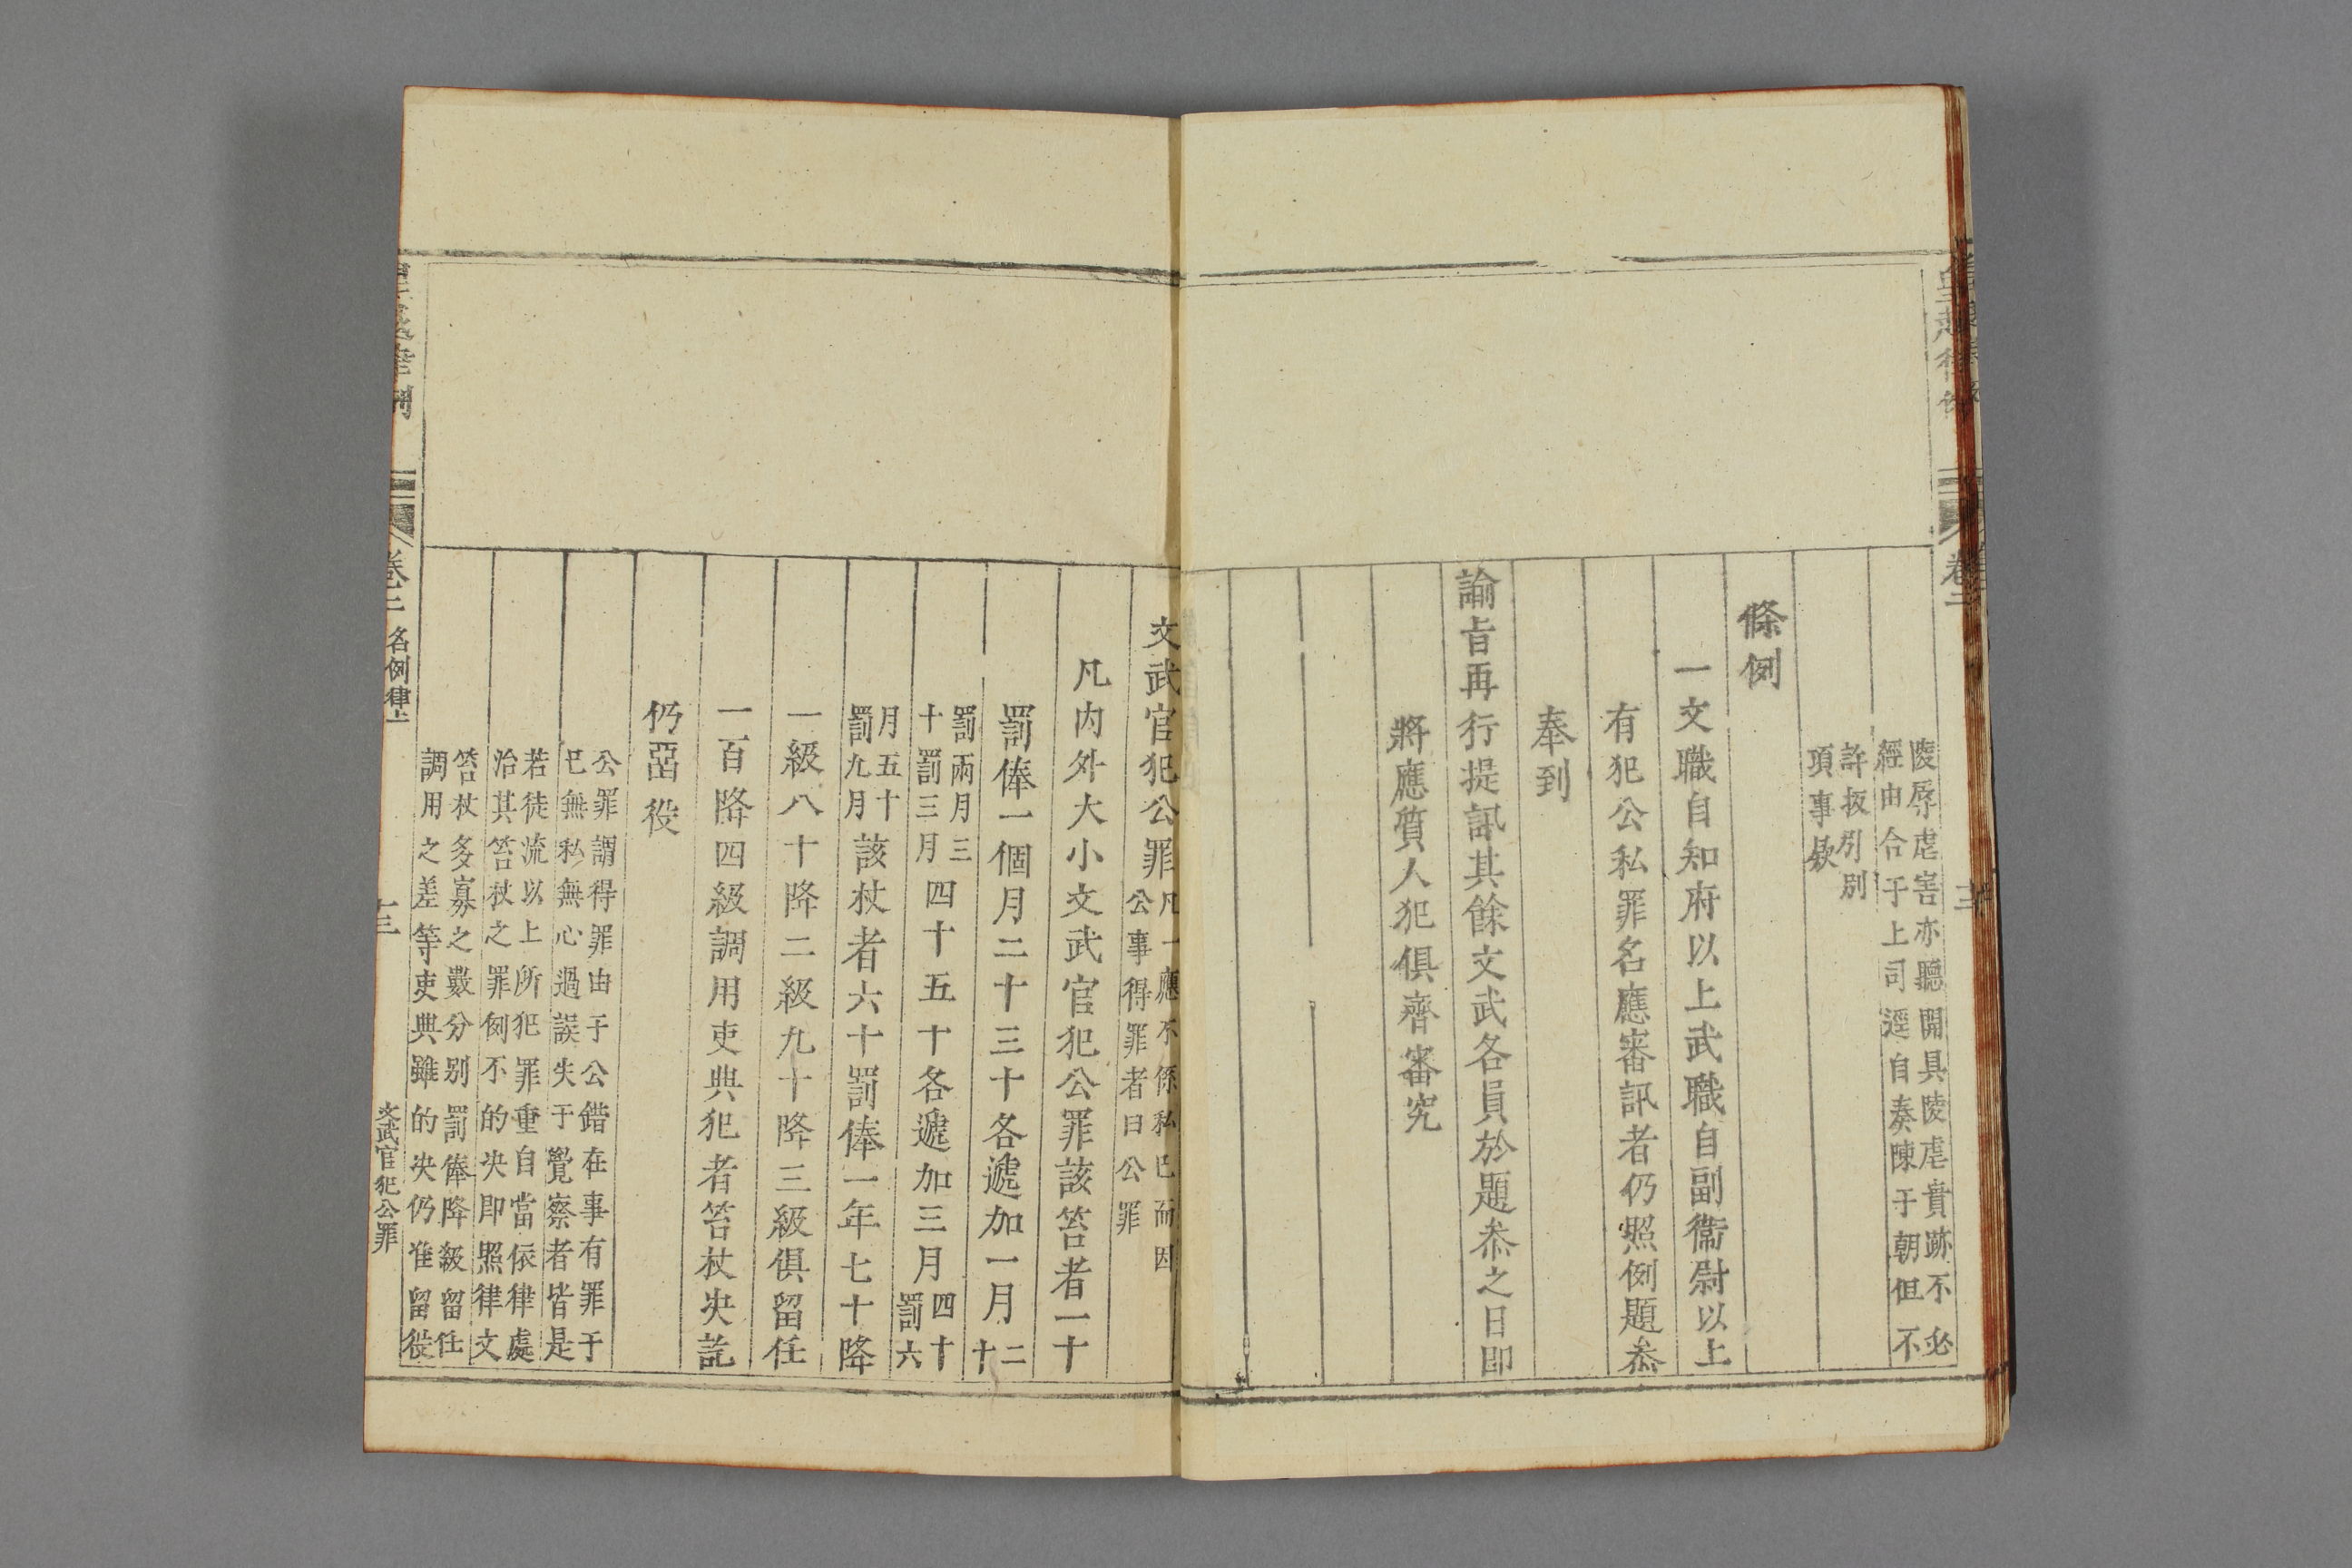 陵辱虐害亦聽開具陵虐實跡不必
經由合于上司逕自奏陳于朝但不
許扳引别
項事欵
條例
一文職自知府以上武職自副衞尉以上
有犯公私罪名應審訊者仍照例題叅
奉到
諭旨再行提訊其餘文武各員於題叅之日即
將應質人犯俱齊審究
文武官犯公罪
凡一應不係私已而因
公事得罪者曰公罪
凡内外大小文武官犯公罪該笞者一十
罰俸一個月二十三十各遞加一月
二
十
罰兩月三
十罰三月
四十五十各遞加三月
四十
罰六
月五十
罰九月
該杖者六十罰俸一年七十降
一級八十降二級九十降三級俱留任
一百降四級調用吏典犯者笞杖决訖
仍畱役
公罪謂得罪由于公錯在事有罪于
已無私無心過誤失于覺察者皆是
若徒流以上所犯罪重自當依律處
治其笞杖之罪例不的决即照律文
笞杖多寡之數分别罰俸降級留任
調用之差等吏典雖的决仍准留役
卷二 名例律上
十三
文武官犯公罪